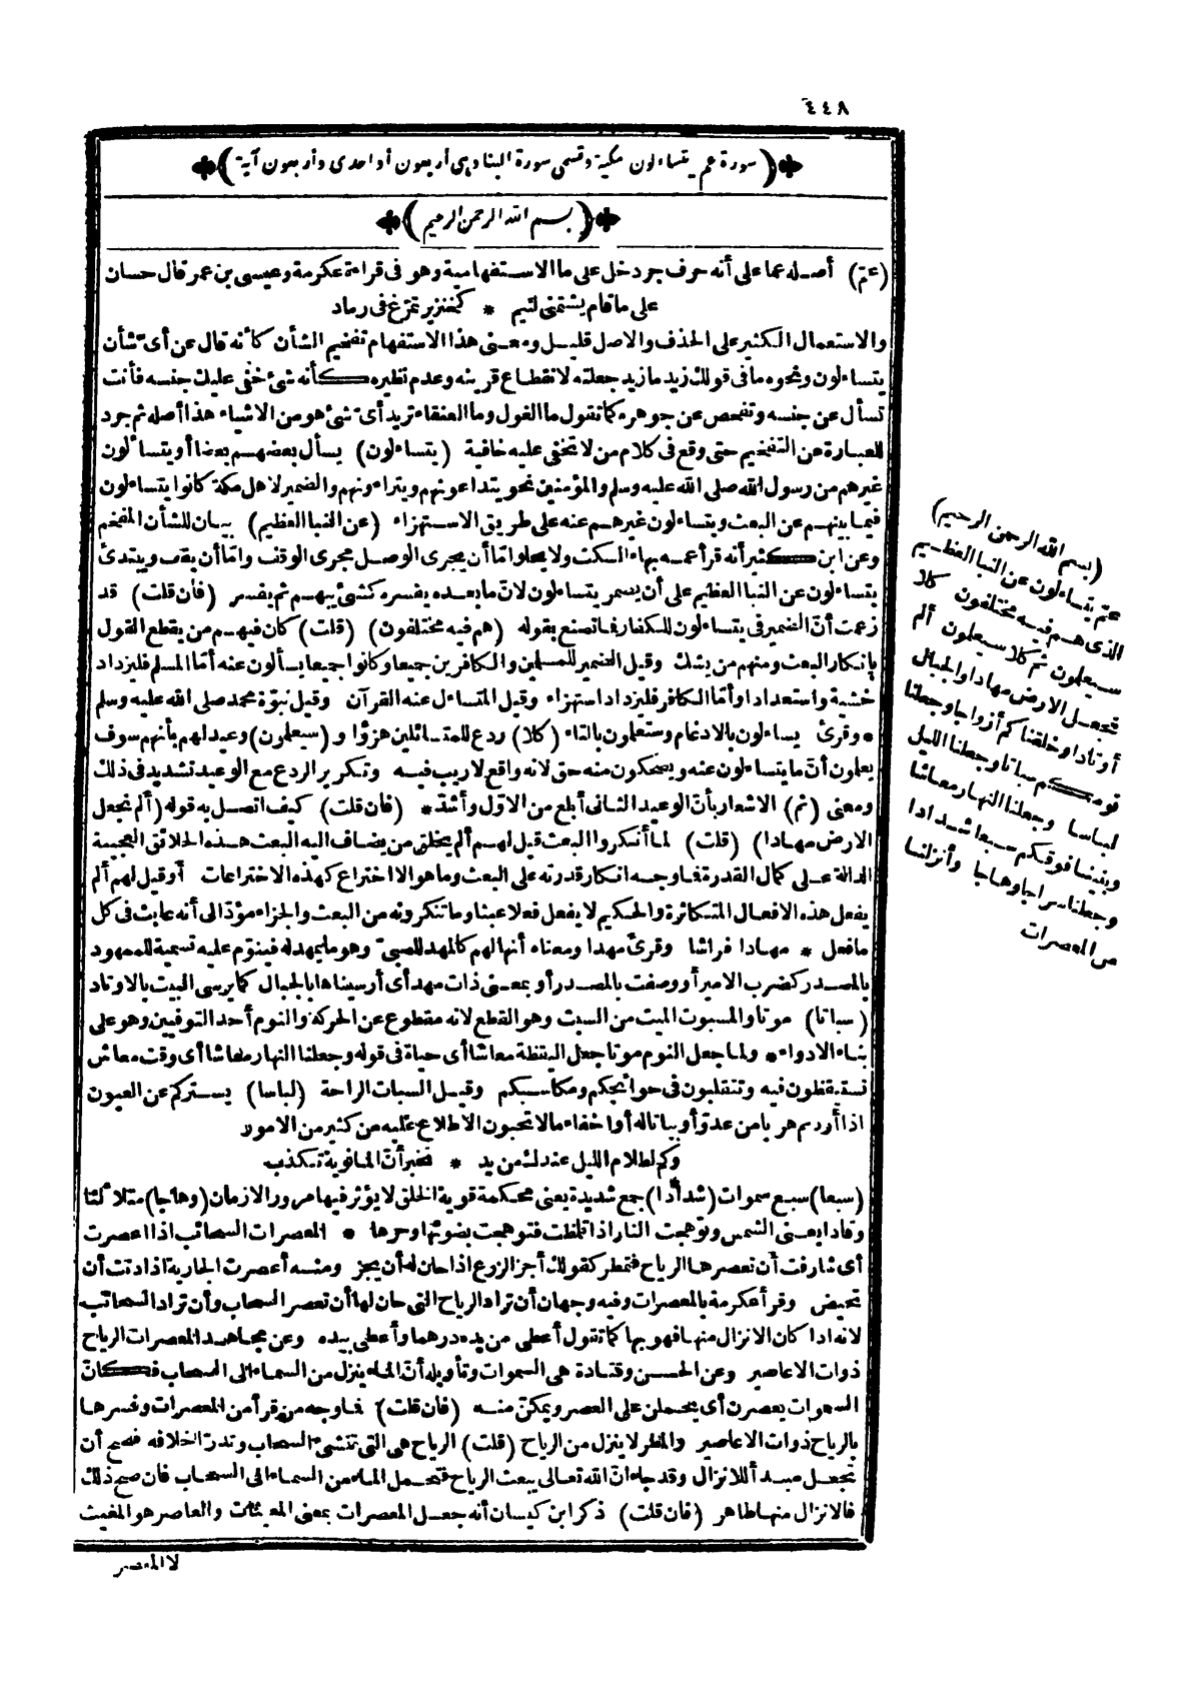 ٤٤٨
(سورة عم يتساءلون مكية وتسمى سورة النبا وهى أربعون أو احدى وأربعون آية)
(بسم الله الرحمن الرحيم)
(عم) أصله عما على أنه حرف جر دخل على ما الاستفهامية وهو فى قراءة عكرمة وعيسى بن عمر قال حسان
على ما قام يشتمنى لئيم * كخنزير تمرّغ فى رماد
والاستعمال الكثير على الحذف والاصل قليل ومعنى هذا الاستفهام تفخيم الشأن كأنه قال عن أىّ شأن
يتساءلون ونحوه ما فى قولك زيد ما زيد جعلته لانقطاع قرينه وعدم نظيره كأنه شئ خفى عليك جنسه فأنت
تسأل عن جنسه وتفحص عن جوهره كما تقول ما الغول وما العنقاء تريد أىّ شئ هو من الاشياء هذا أصله ثم جرد
للعبارة عن التفخيم حتى وقع فى كلام من لا تخفى عليه خافية (يتساءلون) يسأل بعضهم بعضا أو يتساءلون
غيرهم من رسول الله صلى الله عليه وسلم والمؤمنين نحو يتداعونهم ويتراءونهم والضمير لاهل مكة كانوا يتساءلون
فيما بينهم عن البعث ويتساءلون غيرهم عنه على طريق الاستهزاء (عن النبا العظيم) بيان للشأن المفخم
وعن ابن كثير أنه قرأ عمه بهاء السكت ولا يخلو امّا أن يجرى الوصل مجرى الوقف وامّا أن يقف ويبتدئ
يتساءلون عن النبا العظيم على أن يضمر يتساءلون لانّ ما بعده يفسره كشئ يبهم ثم يفسر (فان قلت) قد
زعمت أنّ الضمير فى يتساءلون للكفار فما تصنع بقوله (هم فيه مختلفون) (قلت) كان فيهم من يقطع القول
بانكار البعث ومنهم من يشك وقيل الضمير للمسلمين والكافرين جميعا وكانوا جميعا يسألون عنه أمّا المسلم فليزداد
خشية واستعدادا وأمّا الكافر فليزداد استهزاء وقيل المتساءل عنه القرآن وقيل نبوّة محمد صلى الله عليه وسلم
* وقرئ يساءلون بالادغام وستعلمون بالتاء (كلا) ردع للمتسائلين هزؤا و(سيعلمون) وعيد لهم بأنهم سوف
يعلمون أنّ ما يتساءلون عنه ويضحكون منه حق لانه واقع لا ريب فيه وتكرير الردع مع الوعيد تشديد فى ذلك
ومعنى (ثم) الاشعار بأنّ الوعيد الثانى أبلغ من الاوّل وأشدّ * (فان قلت) كيف اتصل به قوله (ألم نجعل
الارض مهادا) (قلت) لما أنكروا البعث قيل لهم ألم يخلق من يضاف اليه البعث هذه الخلائق العجيبة
الدالة على كمال القدرة فما وجه انكار قدرته على البعث وما هو الا اختراع كهذه الاختراعات أو قيل لهم ألم
يفعل هذه الافعال المتكاثرة والحكيم لا يفعل فعلا عبثا وما تنكرونه من البعث والجزاء مؤدّ الى أنه عابث فى كل
ما فعل * مهادا فراشا وقرئ مهدا ومعناه أنها لهم كالمهد للصبىّ وهو ما يمهد له فينوّم عليه تسمية للممهود
بالمصدر كضرب الامير أو وصفت بالمصدر أو بمعنى ذات مهد أى أرسيناها بالجبال كما يرسى البيت بالاوتاد
(سباتا) موتا والمسبوت الميت من السبت وهو القطع لانه مقطوع عن الحركة والنوم أحد التوفيين وهو على
بناء الادواء * ولما جعل النوم موتا جعل اليقظة معاشا أى حياة فى قوله وجعلنا النهار معاشا أى وقت معاش
تستيقظون فيه وتتقلبون فى حوائجكم ومكاسبكم وقيل السبات الراحة (لباسا) يستركم عن العيون
اذا أردتم هربا من عدوّ أو بياتا له أو اخفاء ما لا تحبون الاطلاع عليه من كثير من الامور
وكم لظلام الليل عندك من يد * تخبر أنّ المانوية تكذب
(سبعا) سبع سموات (شدادا) جمع شديدة يعنى محكمة قوية الخلق لا يؤثر فيها مرور الازمان (وهاجا) متلالئا
وقادا يعنى الشمس وتوهجت النار اذا تلظت فتوهجت بضوئها وحرها * المعصرات السحائب اذا اعصرت
أى شارفت أن تعصرها الرياح فتمطر كقولك أجز الزرع اذا حان له أن يجز ومنه أعصرت الجارية اذا دنت أن
تحيض وقرأ عكرمة بالمعصرات وفيه وجهان أن تراد الرياح التى حان لها أن تعصر السحاب وأن تراد السحائب
لانه اذا كان الانزال منها فهو بها كما تقول أعطى من يده درهما وأعطى بيده وعن مجاهد المعصرات الرياح
ذوات الاعاصير وعن الحسن وقتادة هى السموات وتأويله أنّ الماء ينزل من السماء الى السحاب فكانّ
السموات يعصرن أى يحملن على العصر ويمكنّ منه (فان قلت) فما وجه من قرأ من المعصرات وفسرها
بالرياح ذوات الاعاصير والمطر لا ينزل من الرياح (قلت) الرياح هى التى تنشئ السحاب وتدرّ اخلافه فصح أن
تجعل مبدأ للانزال وقد جاء انّ الله تعالى يبعث الرياح فتحمل الماء من السماء الى السحاب فان صح ذلك
فالانزال منها ظاهر (فان قلت) ذكر ابن كيسان أنه جعل المعصرات بمعنى المغيثات والعاصر هو المغيث
لا المعصر
(بسم الله الرحمن الرحيم)
عمّ يتساءلون عن النبا العظيم
الذى هم فيه مختلفون كلا
سيعلمون ثم كلا سيعلمون ألم
نجعل الارض مهادا والجبال
أوتادا وخلقناكم أزواجا وجعلنا
نومكم سباتا وجعلنا الليل
لباسا وجعلنا النهار معاشا
وبنينا فوقكم سبعا شدادا
وجعلنا سراجا وهاجا وأنزلنا
من المعصرات